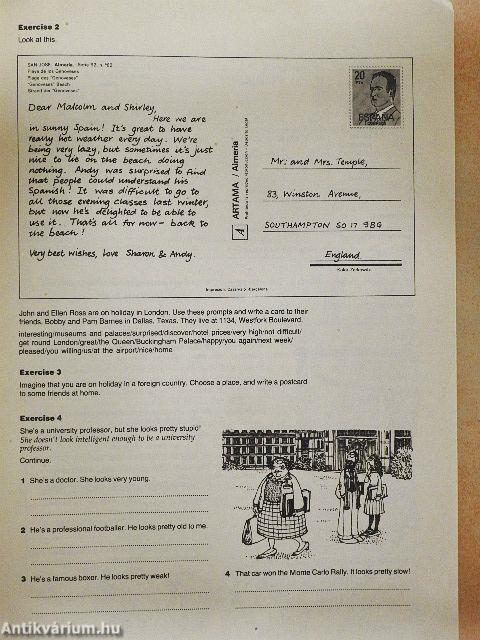 Exercise 2
Look at this.
SAN JOSE, Almeria.
Playa de los Genoveses
Plage des "Genoveses"
"Genoveses" Beach
Strand der "Genoveses"
20
PTA
ESPAÑA
CORREOS
Dear Malcolm and Shirley,
Here we are
in sunny Spain! It's great to have
really hot weather every day. We're
being very lazy, but sometimes it's just
nice to lie on the beach doing
nothing. Andy was surprised to find
that people could understand his
Spanish! It was difficult to go to
all those evening classes last winter,
but now he's delighted to be able to
use it. That's all for now – back to
the beach!
Very best wishes, love Sharon & Andy.
ARTAMA / Almeria
A
Mr. and Mrs. Temple,
83, Winston Avenue,
SOUTHAMPTON SO 17 9BG
England
John and Ellen Ross are on holiday in London. Use these prompts and write a card to their
friends, Bobby and Pam Barnes in Dallas, Texas. They live at 1134, Westfork Boulevard.
interesting/museums and palaces/surprised/discover/hotel prices/very high/not difficult/
get round London/great/the Queen/Buckingham Palace/happy/you again/next week/
pleased/you willing/us/at the airport/nice/home
Exercise 3
Imagine that you are on holiday in a foreign country. Choose a place, and write a postcard
to some friends at home.
Exercise 4
She's a university professor, but she looks pretty stupid!
She doesn't look intelligent enough to be a university
professor.
Continue.
1 She's a doctor. She looks very young.
2 He's a professional footballer. He looks pretty old to me.
3 He's a famous boxer. He looks pretty weak!
4 That car won the Monte Carlo Rally. It looks pretty slow!
Antikvárium.hu